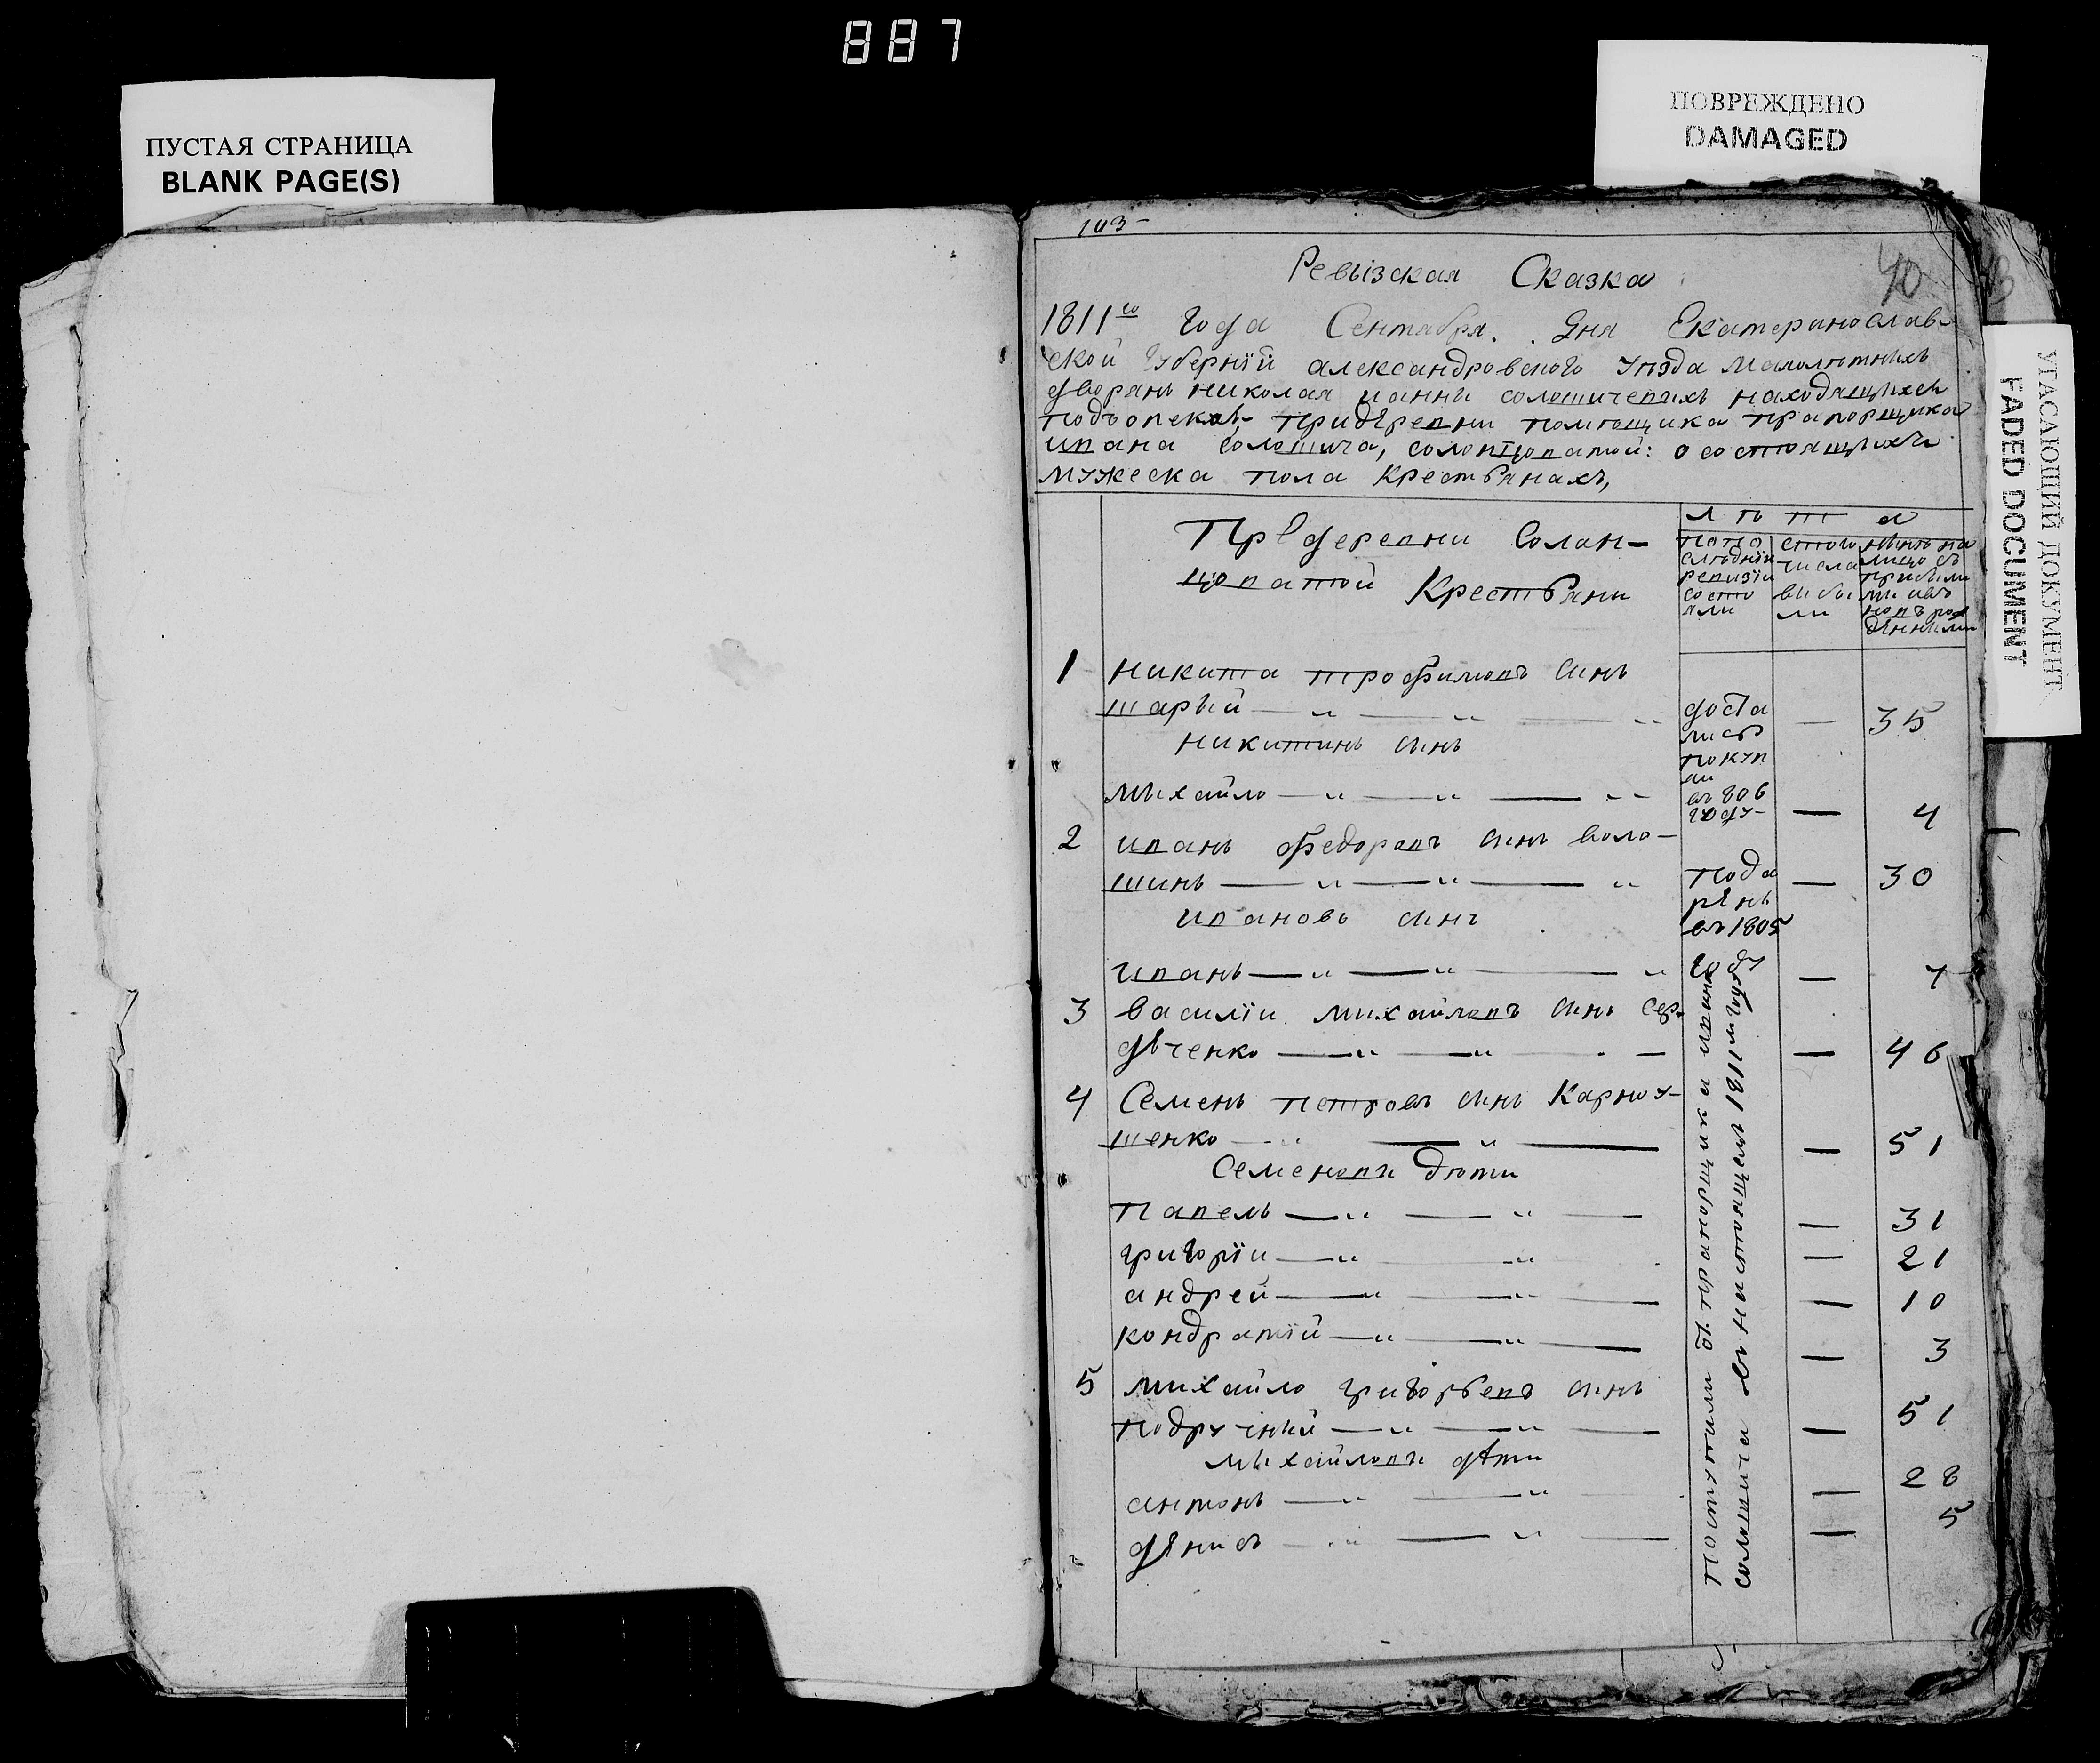 887
ПУСТАЯ СТРАНИЦА
BLANK PAGE(S)
ПОВРЕЖДЕНО
DAMAGED
УГАСАЮЩИЙ ДОКУМЕНТ
FADED DOCUMENT
103-
40
Ревызская Сказка
1811го года Сентября. дня Екатеринослав-
ской губернїй александровского уѣзда малолѣтнихъ
дворянъ николая ианны солошичевыхъ находящихся
подъопекою придеревни помѣщика прапорщика
ивана Солошича, солонцоватой: о состоящихъ
мужеска пола крестьянахъ,
Пр деревни Солон-
цоватой Крестьяни
лѣта
попо
слѣдній
ревизїи
состо
яли
стого
числа
выбы
ли
нынѣ на
лицо съ
прибыли
ми ивъ
новъ рож
денными
1 никита трофимовъ синъ
шарый — 35
никитинъ синъ
михайло — 4
доста
лись
покуп
ли
въ 806
году-
2 иванъ федоровъ синъ воло-
шинъ — 30
ивановъ синъ
иванъ — 7
пода
ренъ
въ 1805
году
3 василїи михайловъ синъ сер-
дѣченко — 46
4 Семенъ петровъ синъ Карноу-
шенко — 51
Семенови дѣти
павелъ — 31
григорїи — 21
андрей — 10
кондратїй — 3
5 михайло григорьевъ синъ
подручный — 51
михайлови дѣти
антонъ — 28
денисъ — 5
Поступили от прапорщика ивана
солошича въ настоящемъ 1811м году